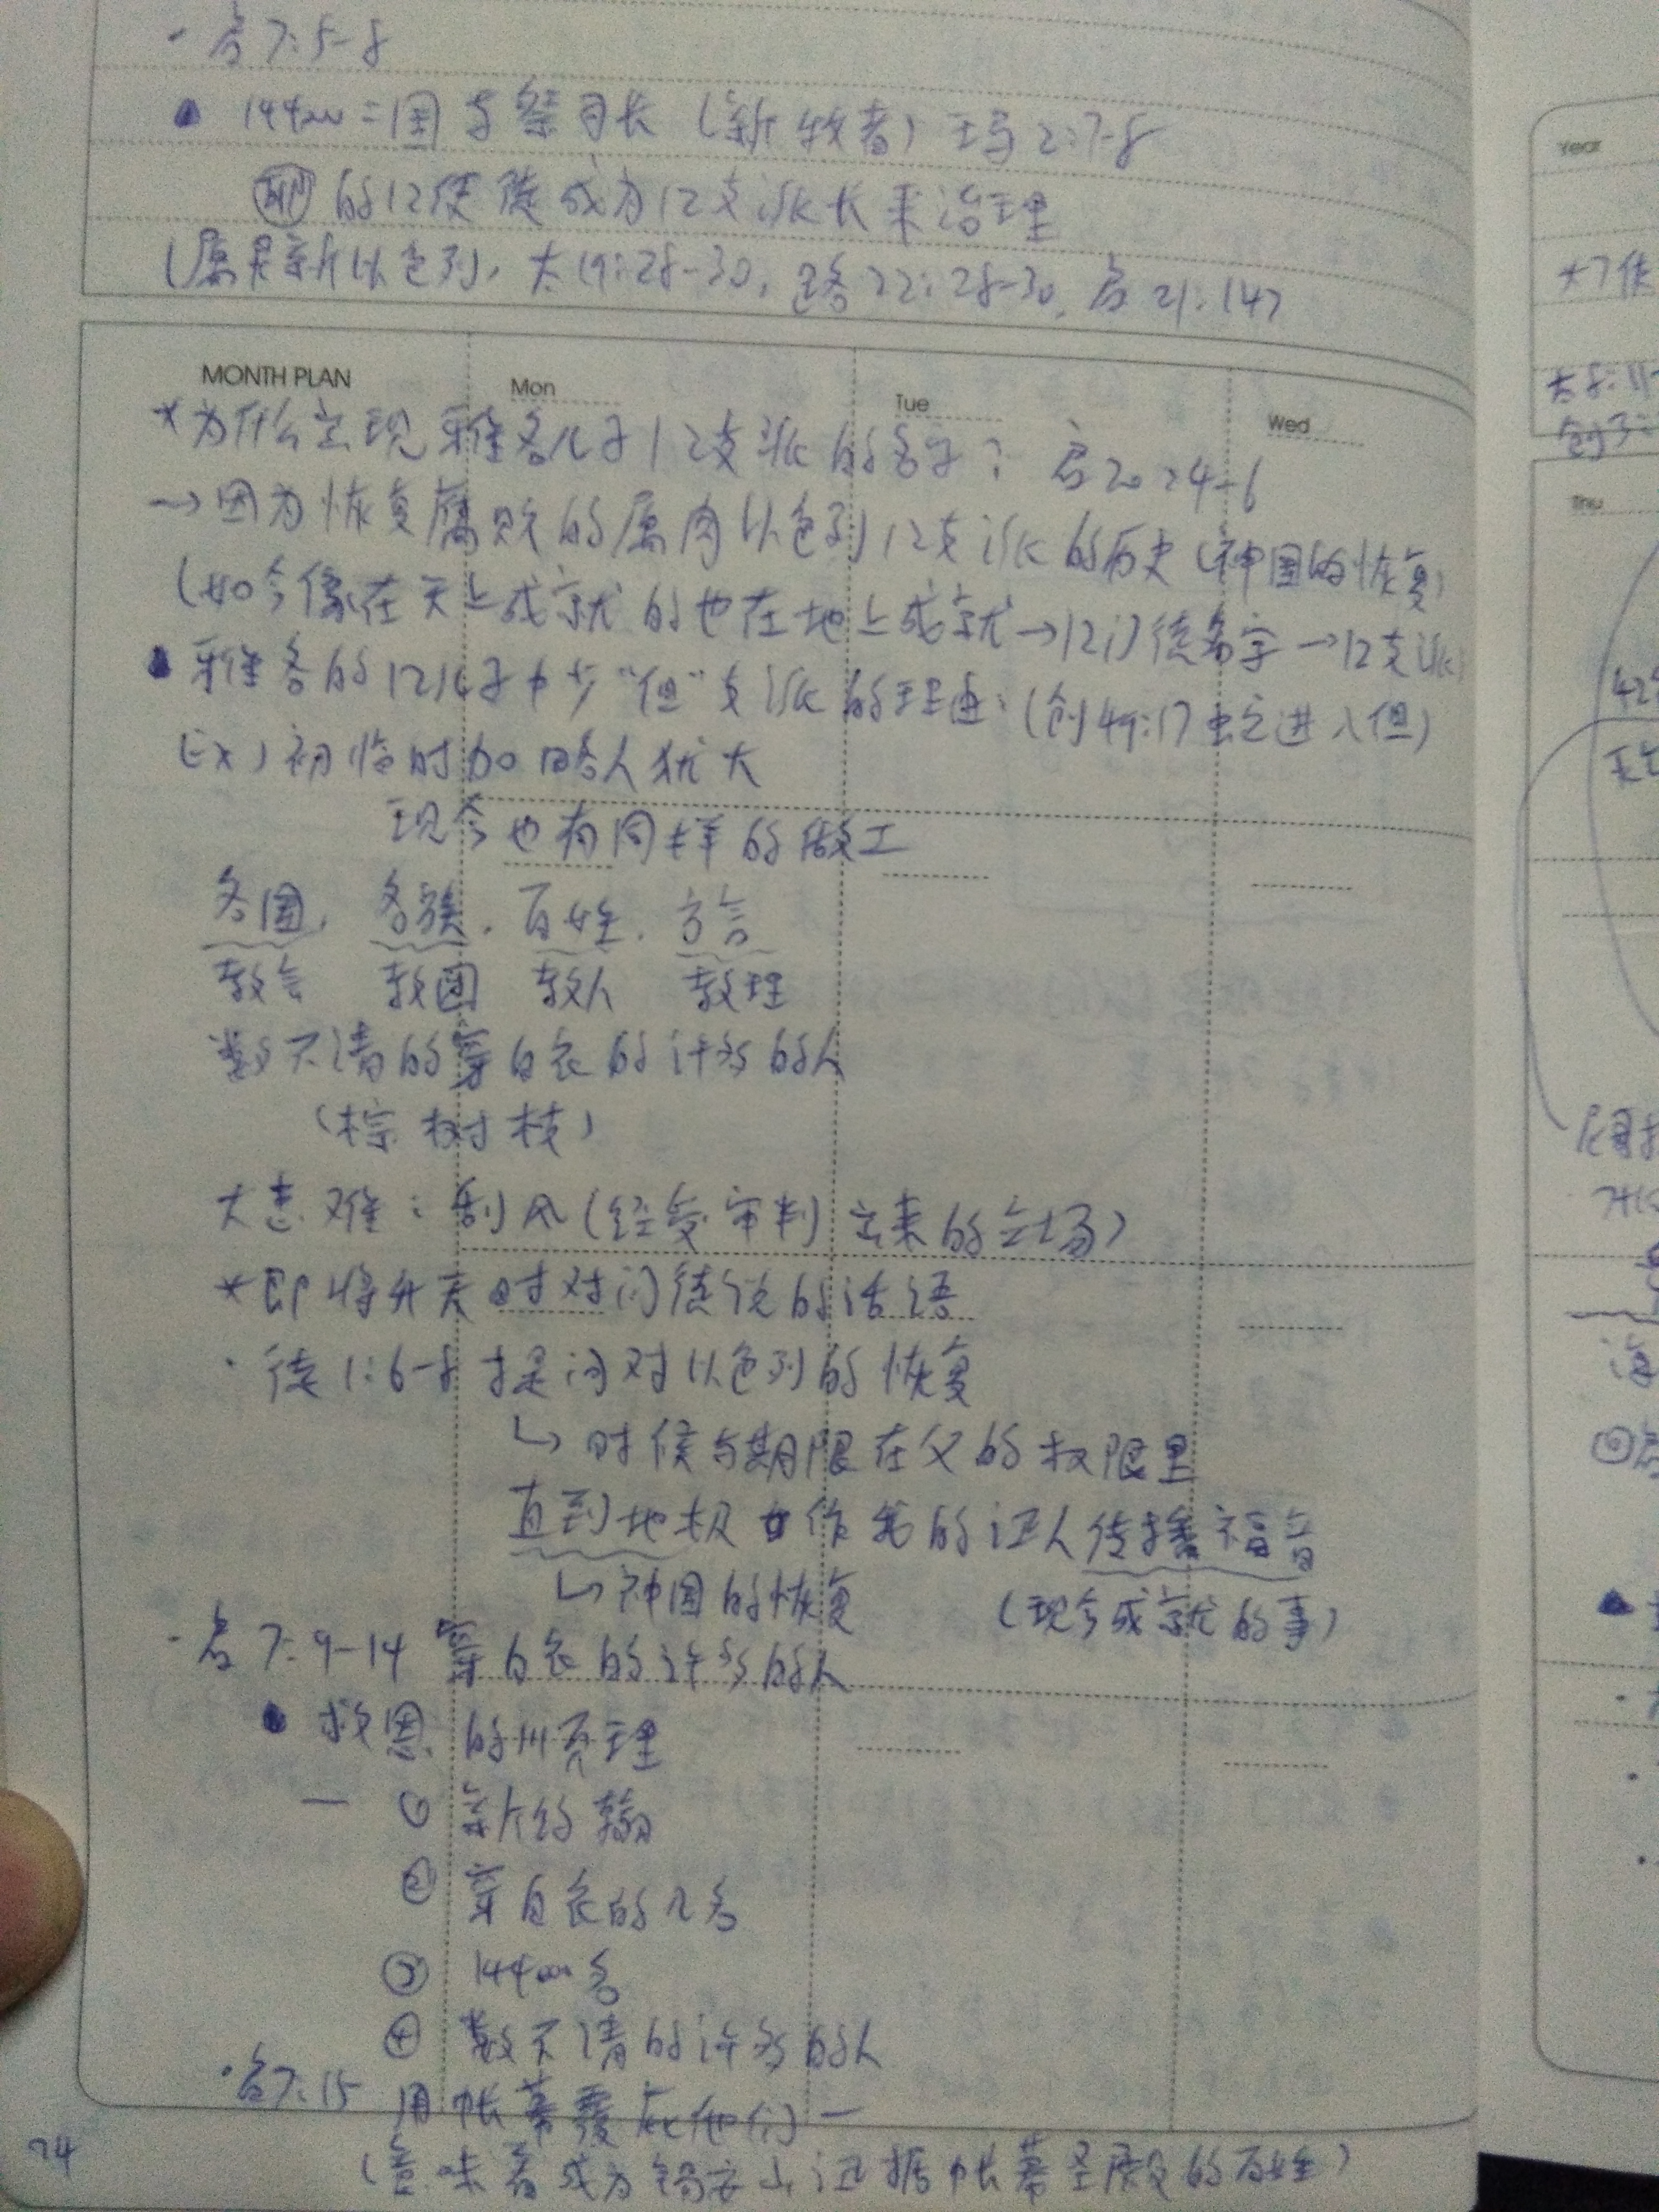 · 启7:5-8
144000=国与祭司长（新牧者）玛2:7-8
的12使徒成为12支派长来治理
（属灵新以色列，太19:28-30，路22:28-30，启21:14）
MONTH PLAN Mon Tue Wed
*为什么出现雅各儿子12支派的名字？ 启20:4-6
→因为恢复腐败的属肉以色列12支派的历史（神国的恢复）
（如今像在天上成就的也在地上成就→12门徒名字→12支派
雅各的12儿子中少“但”支派的理由：（创49:17 虫它进入但）
Ex）初临时加略人犹大
现今也有同样的做工
各国，各族，百姓，方言
教会 教团 教人 教理
数不清的穿白衣的许多的人
（棕树枝）
大患难：刮风（经受审判出来的立场）
*即将升天时对门徒说的话语
· 徒1:6-8 才是问对以色列的恢复
↳时候与期限在父的权限里
直到地极 作我的证人传播福音
↳神国的恢复 （现今成就的事）
· 启7:9-14 穿白衣的许多的人
救恩的顺理
— ① 新约
② 穿白衣的几名
③ 144000名
④ 数不清的许多的人
· 启7:15 用帐幕覆庇他们 —
（意味着成为锡安山证据帐幕圣殿的百姓）
74
Year
*7
太8:11
创3:
Thu
42